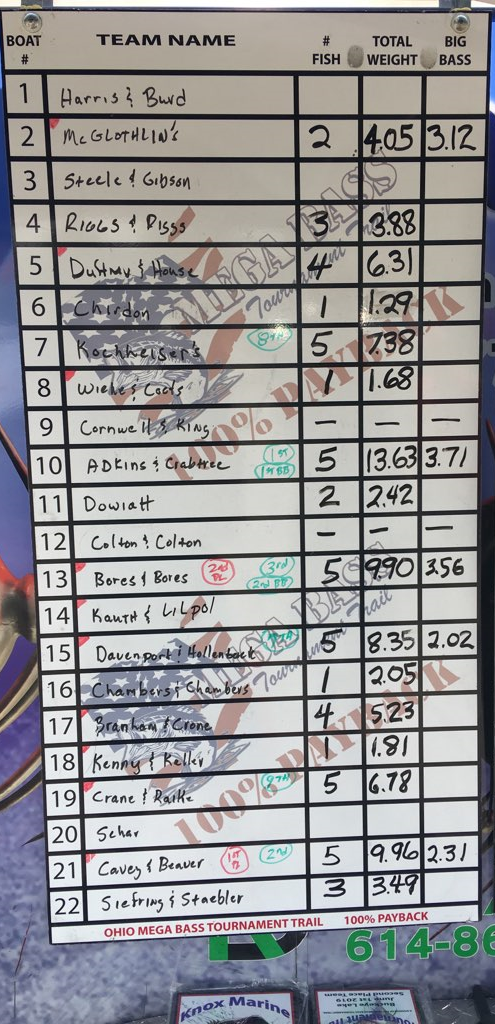 BOAT # TEAM NAME # FISH TOTAL WEIGHT BIG BASS
1 Harris & Burd
2 McGLOTHLIN'S 2 4.05 3.12
3 Steele & Gibson
4 RIGGS & RIGGS 3 3.88
5 & House 4 6.31
6 Chirdon 1 1.29
7 Kochheiser's 8TH 5 7.38
8 1 1.68
9 Cornwell & King — — —
10 ADKINS & Crabtree 1ST 1ST BB 5 13.63 3.71
11 Dowiatt 2 2.42
12 Colton & Colton — — —
13 Bores & Bores 2nd PL 3rd 2nd BB 5 9.90 3.56
14 Kauth & LILpol
15 Davenport & Hollenback 5 8.35 2.02
16 Chambers & Chambers 1 2.05
17 Branham & Crone 4 5.23
18 Kenny & Kelley 1 1.81
19 Crane & 9TH 5 6.78
20 Schar
21 Cavey & Beaver 1ST PL 2nd 5 9.96 2.31
22 Siefring & Staebler 3 3.49
MEGA BASS
Tournament Trail
100% PAYBACK
MEGA BASS
Tournament Trail
100% PAYBACK
OHIO MEGA BASS TOURNAMENT TRAIL 100% PAYBACK
614-86
Knox Marine
Second Place Team
June 1st 2019
Buckeye Lake